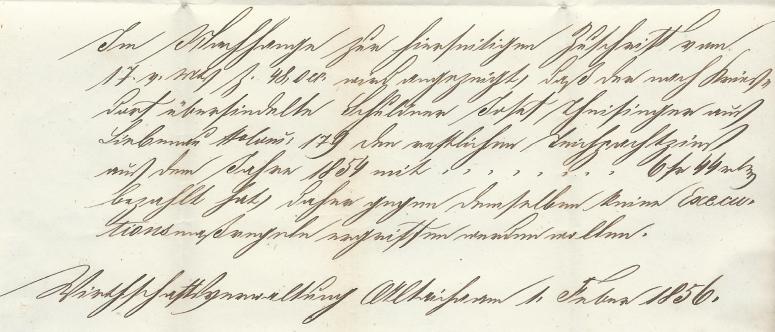 Im Nachhange zur hierseitigen Zuschrift vom
17. v. Mts Z. 48 wird angezeigt, daß der nach
dorf übersiedelte Schuldner Josef Theisinger aus
Liebenau 179 den restlichen Teichpachtzins
aus dem Jahre 1854 mit , , , , , , , 6 fr 44
bezahlt hat, daher gegen demselben keine Execu-
tionsmaßregeln ergriffen werden wollen.
Wirthschaftsverwaltung Altaicha am 1. Feber 1856.